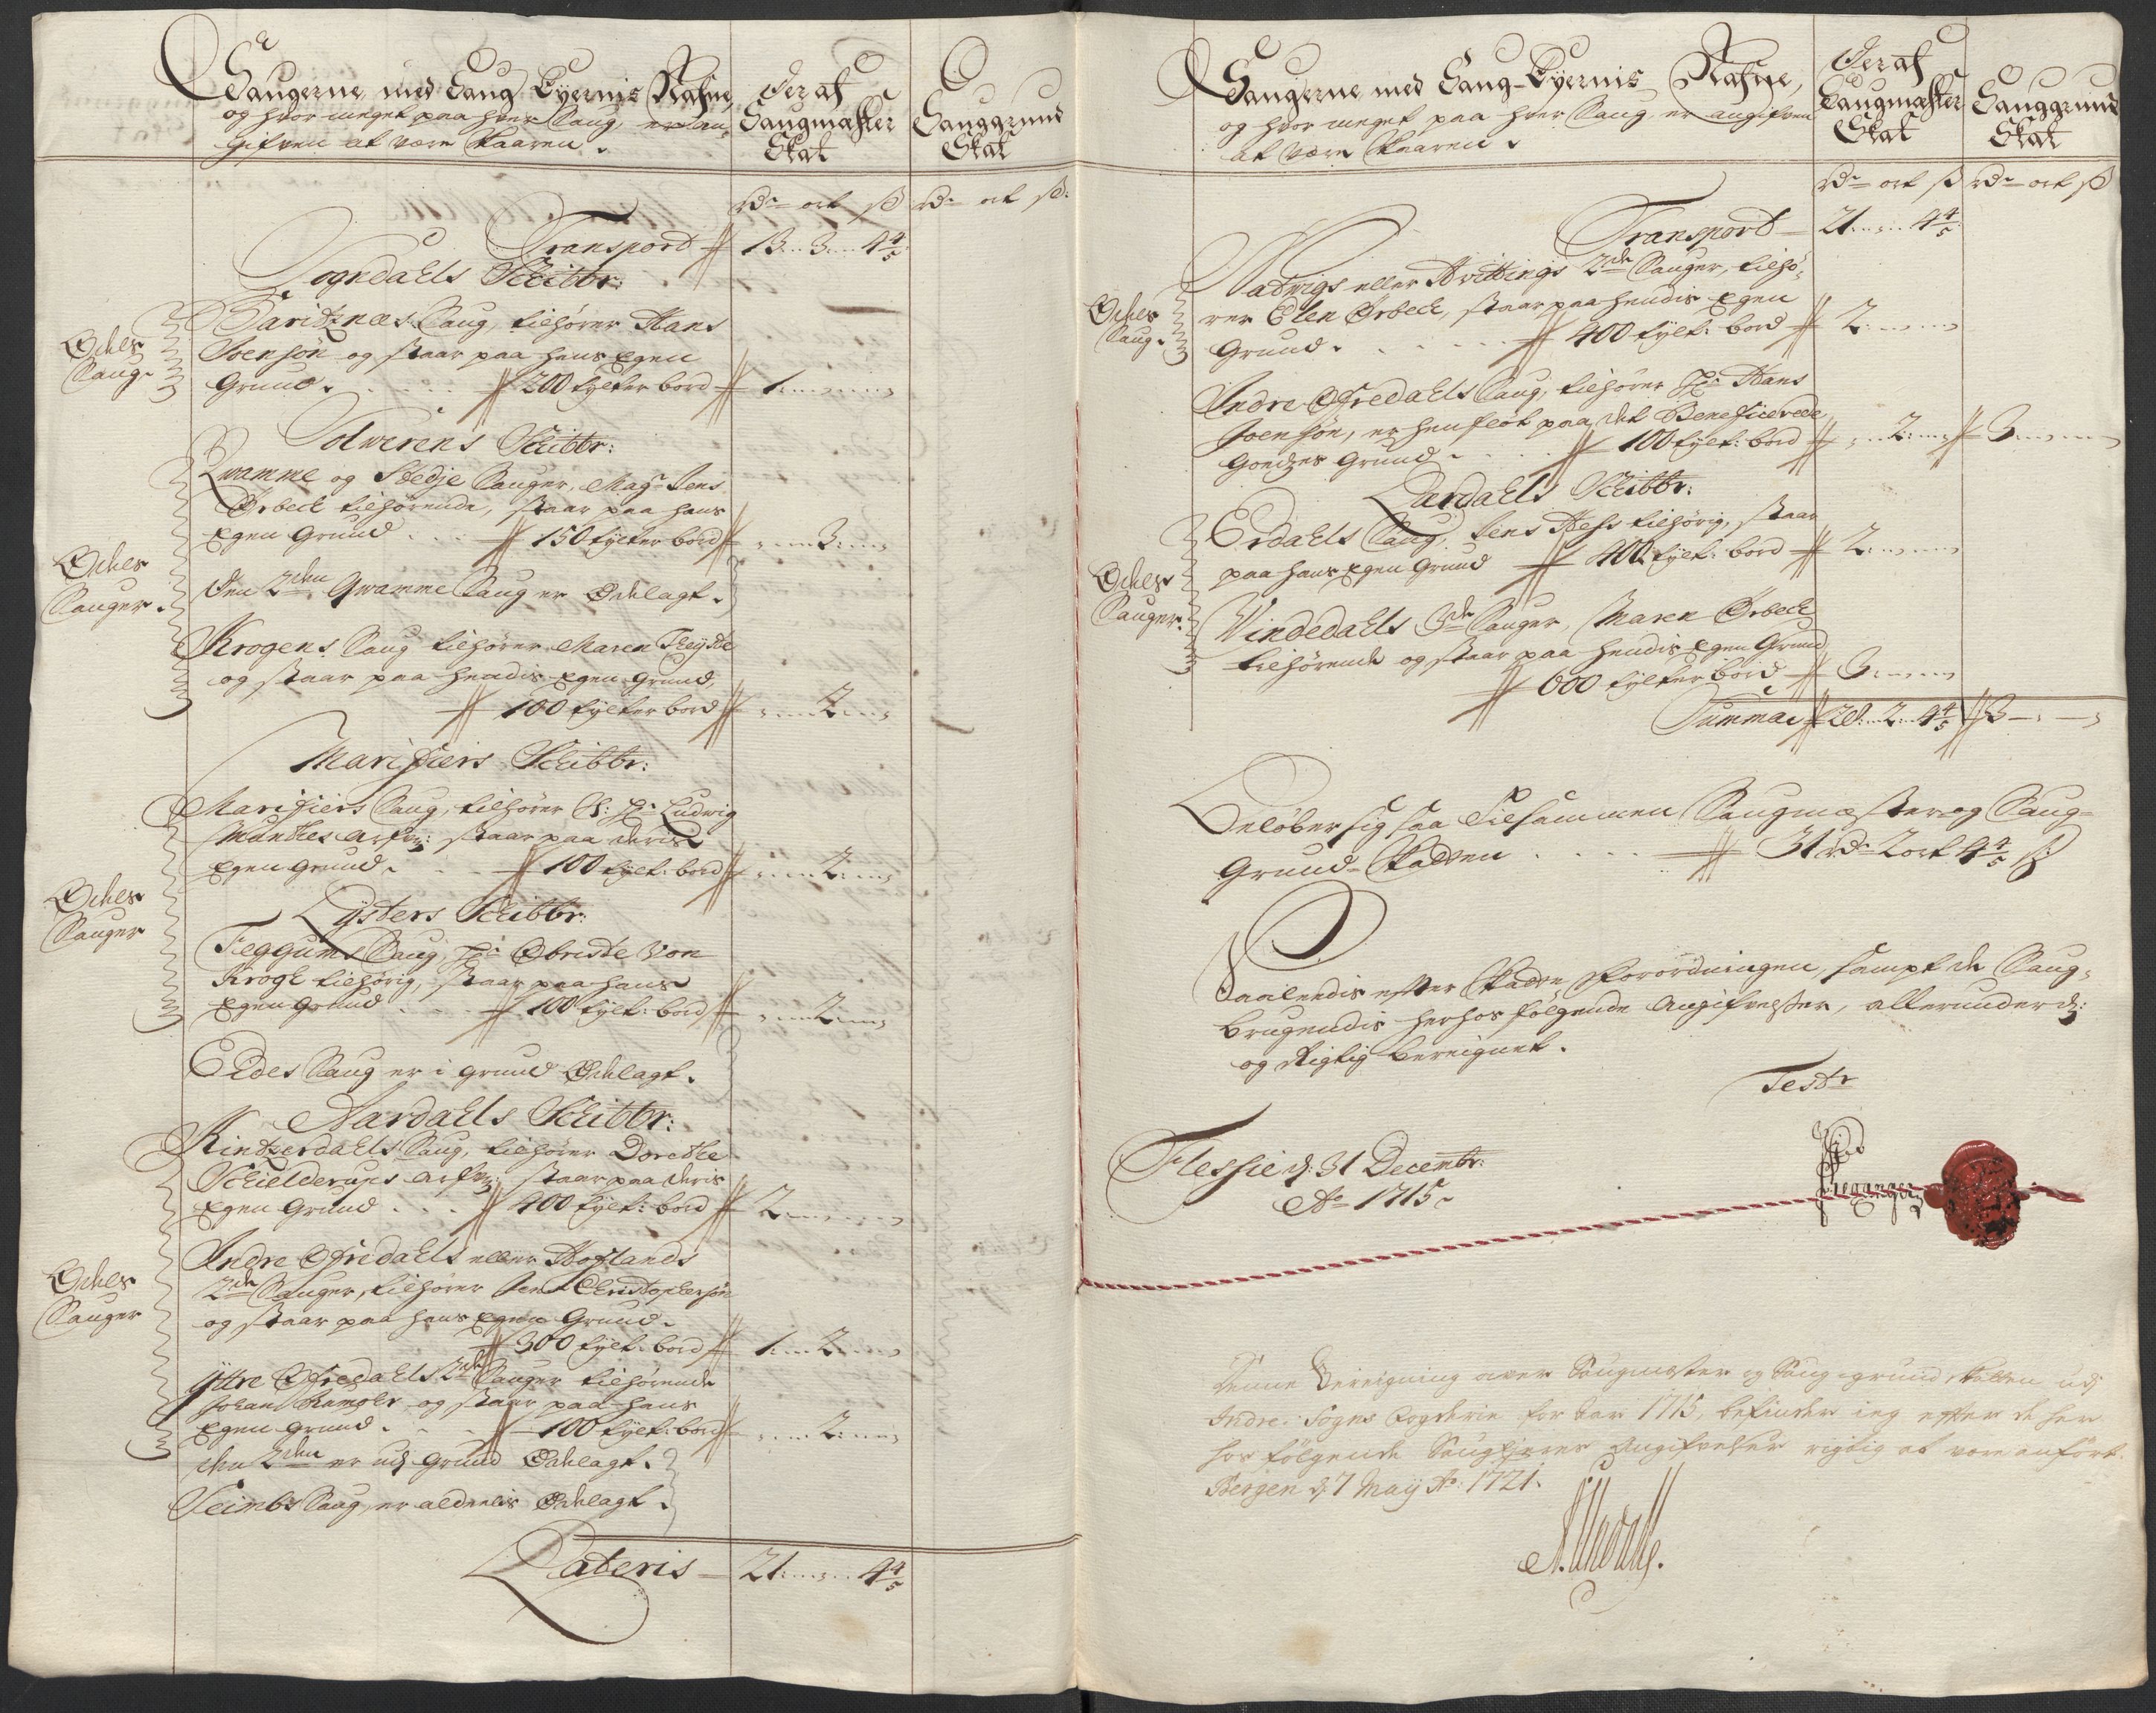 Saugerne med Saug-Eyernis Nafne,
og hvor meget paa hver Saug, er an-
gifven at være Skaaren.
Deraf
Saugmæster
Skat
Sauggrund
Skat
rdr ort ß rdr ort ß:
Transport 13 .. 3 .. 4 4/5
Sogndahls Schibbr:
Øehler
Saug.
Saug, tilhører Hans
Joensøn og staar paa hans Egen
Grund. 200 tylter bord 1
Solwerens Schibbr:
Øehler
Sauger.
Qvamme og Stedje Sauger, Magr Jens
Ørbech tilhørende, staar paa hans
Egen Grund 150 tylter bord 3
den 2den Qwamme Saug er Ødelagt.
Krogens Saug tilhører Maren
og staar paa hendis Egen Grund,
100 tylter bord 2
Marifiers Schibbr:
Øehler
Sauger
Marifiers Saug, tilhører S: Hr Ludwig
Munthes arfvr: staar paa deris
Egen grund. 100 tylt: bord 2
Lysters Schibbr:
Feggums Saug, Hr Obriste Von
Krogh tilhørig, staar paa hans
Egen Grund 100 tylt: bord 2
Eides Saug er i grund Ødelagt.
Aardahls Schibbr:
Øehler
Sauger
Kintzerdahls Saug, tilhører Dorethe
Schielderups arfvr: staar paa deris
Egen Grund 400 tylt: bord 2
Indre Ofredahls eller Hoflands
2de Sauger, tilhører Jens Christophersøn
og staar paa hans Egen Grund.
300 tylt: bord 1 .. 2
Yttre Ofredahls 2de Sauger tilhørende
Johan og staar paa hans
Egen grund. 100 tylt: bord 2
den 2den er udj Grund Ødelagt.
Seimbs Saug, er aldeelis Ødelagt.
Lateris 21 .. 4 4/5
Saugerne med Saug-Eyernis Nafne,
og hvor meget paa hver Saug er angifven
at være Skaaren.
Deraf
Saugmæster
Skat
Sauggrund
Skat
rdr ort ß rdr ort ß
Transport 21 .. 4 4/5
Øehler
Saug.
Nadwigs eller Hvittings 2de Sauger, tilhø-
rer Elen Ørbech, staar paa hendis Egen
Grund. 400 tylt: bord 2
Indre Ofredahls Saug, tilhører Hr Hans
Joensøn, er henfløt paa det Beneficerede
Goedzes Grund. 100 tylt: bord 2 3
Lærdahls Schibbr:
Øehler
Sauger.
Erdahls Saug, Jens Hess tilhørig, staar
paa hans Egen Grund 400 tylt: bord 2
Vindedahls 3de Sauger, Maren Ørbech
tilhørende og staar paa hendis Egen Grund
600 tylter bord 3
Summa 28 .. 2 .. 4 4/5 3
Beløber sig saa Tilsammen Saugmæster og Saug-
Grund-Skatten 31 rdr 2 ort 4 4/5 ß
Saaleedis efter Skatte Forordningen, sampt de Saug-
brugendis herhos følgende Angifvelser, allerunderd:
og Rigtig bereignet.
Testr
Flessie d: 31 Decembr:
Ao 1715.
Denne Bereigning over Saugmæster og Saug-grund skatten udj
Indre-Sogns Fogderie for Aar 1715, befinder ieg efter de her
hos følgende Saugejeres Angifvelser rigtig at være anført.
Bergen d. 7 May Ao: 1721.